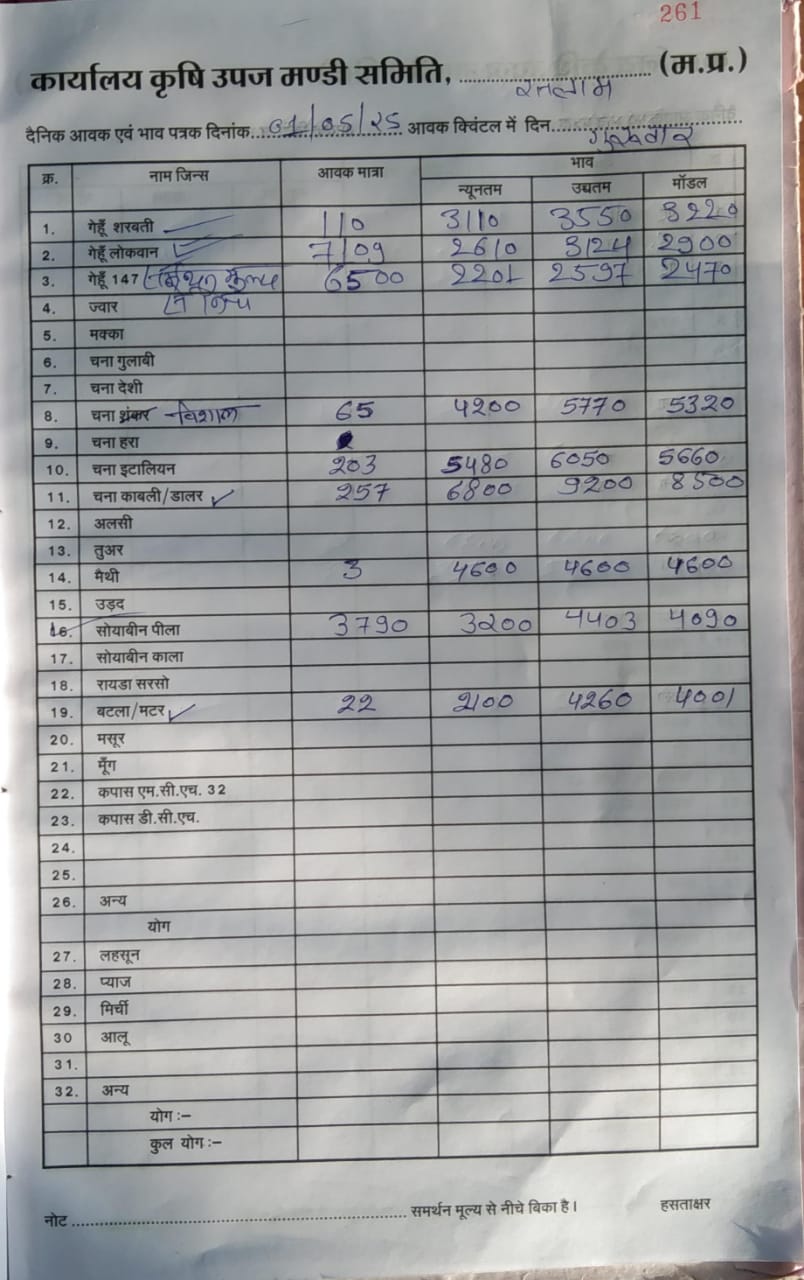 261
कार्यालय कृषि उपज मण्डी समिति, रतलाम (म.प्र.)
दैनिक आवक एवं भाव पत्रक दिनांक 01/05/25 आवक क्विंटल में दिन गुरुवार
क्र. नाम जिन्स आवक मात्रा भाव
न्यूनतम उच्चतम मॉडल
1. गेहूँ शरबती 110 3110 3550 3220
2. गेहूँ लोकवान 7109 2610 3124 2900
3. गेहूँ 147 मिथुन 6500 2201 2597 2470
4. ज्वार
5. मक्का
6. चना गुलाबी
7. चना देशी
8. चना शंकर विशाल 65 4200 5770 5320
9. चना हरा
10. चना इटालियन 203 5480 6050 5660
11. चना काबली/डालर 257 6800 9200 8500
12. अलसी
13. तुअर
14. मैथी 3 4600 4600 4600
15. उड़द
16. सोयाबीन पीला 3790 3200 4403 4090
17. सोयाबीन काला
18. रायडा सरसो
19. बटला/मटर 22 2100 4260 4001
20. मसूर
21. मूँग
22. कपास एम.सी.एच. 32
23. कपास डी.सी.एच.
24.
25.
26. अन्य
योग
27. लहसून
28. प्याज
29. मिर्ची
30 आलू
31.
32. अन्य
योग :–
कुल योग :–
नोट समर्थन मूल्य से नीचे बिका है। हसताक्षर